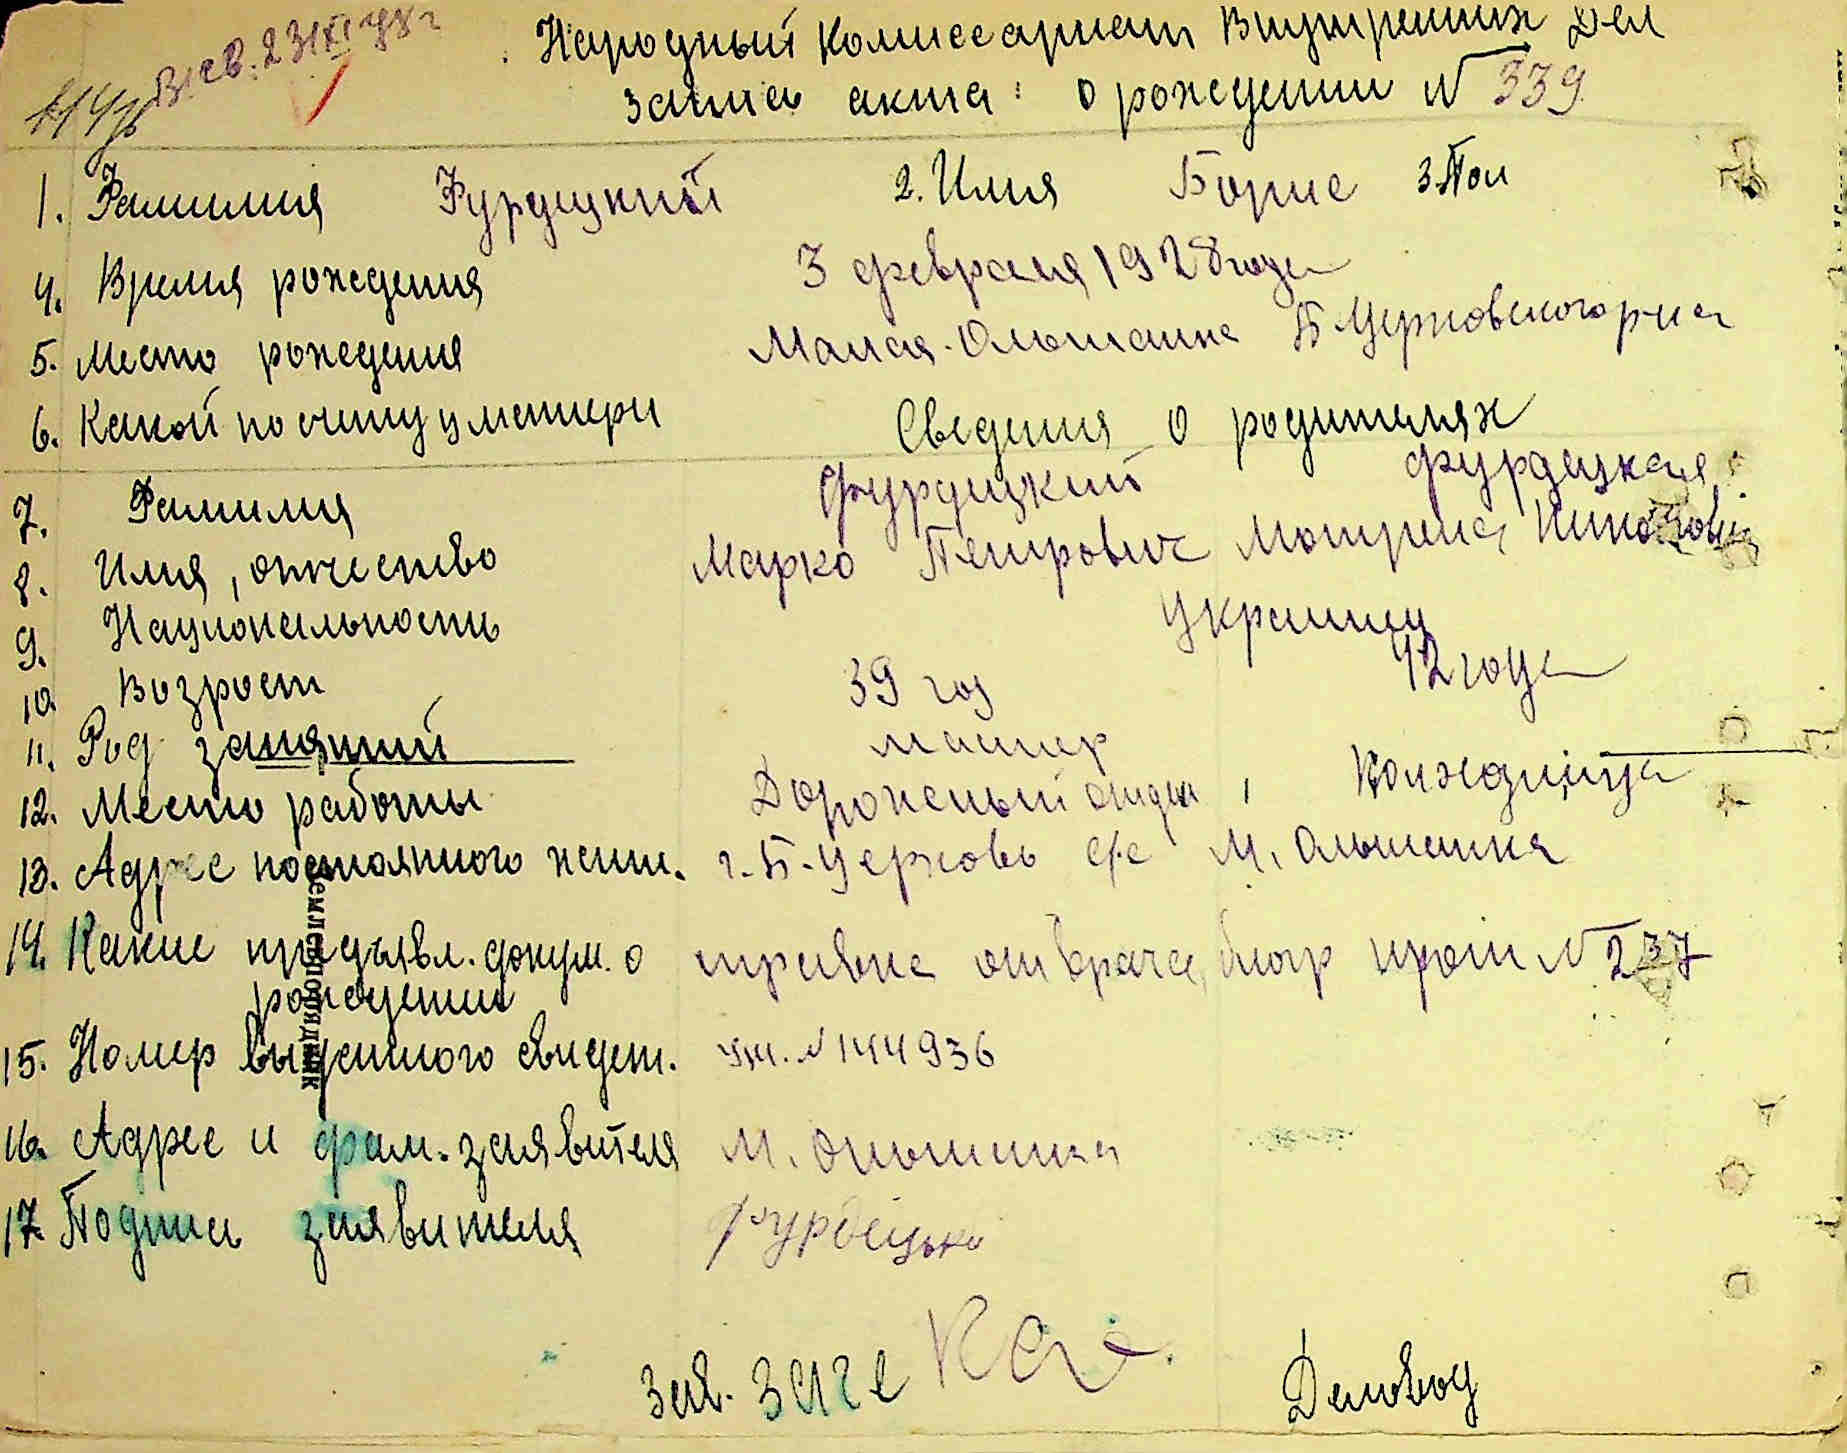 Выдв. 23/XI 48 г
Народный Комиссариат Внутренних Дел
Запись акта: о рождении N 339
1. Фамилия Фурдецкий 2. Имя Борис 3. Пол
4. Время рождения 3 февраля 1928 года
5. Место рождения Малая-Ольшанка Б Церковского р-на
6. Какой по счету у матери Сведения о родителях
7. Фамилия Фурдецкий Фурдецкая
8. Имя, отчество Марко Петрович Мотрена
9. Национальность Украинц
10. Возраст 39 год 42 года
11. Род занятий мастер
12. Место работы Дорожный отдел, Колхозница
13. Адрес постоянного жит. г. Б-Церковь с/с М. Ольшанка
14. Какие предъявл. докум. о рождении справка от врача, прот N 237
15. Номер выданного свидет. N 144936
16. Адрес и фам. заявителя М. Ольшанка
17. Подпись заявителя Фурдецьки
Зав. Загс Деловод
Землепорядник